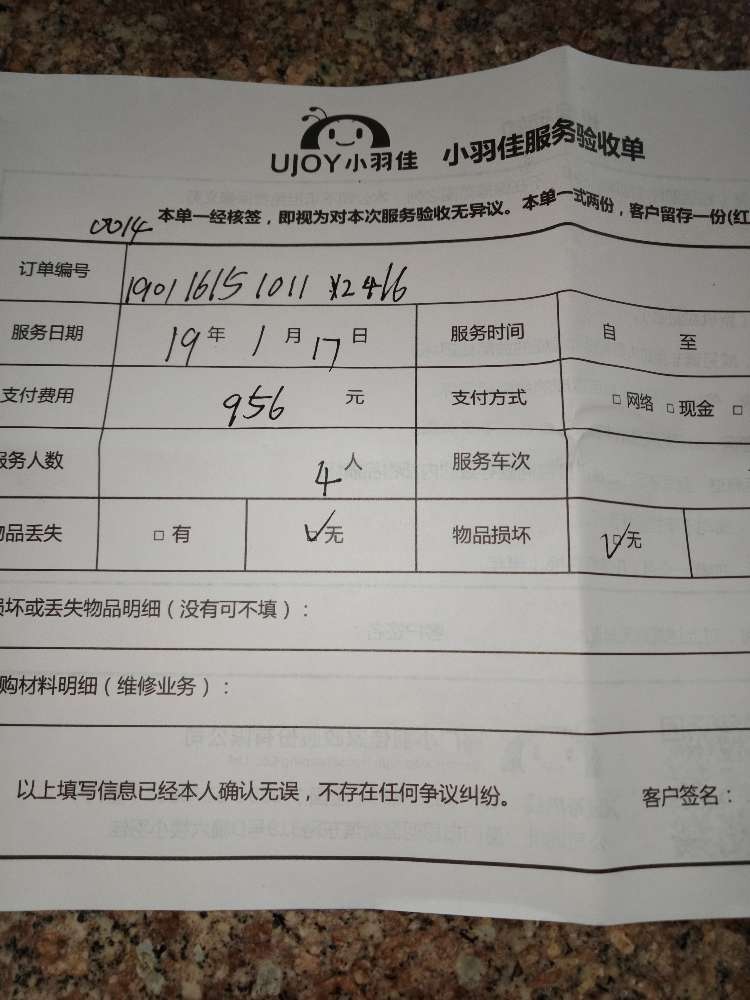 UJOY小羽佳 小羽佳服务验收单
0014 本单一经核签，即视为对本次服务验收无异议。本单一式两份，客户留存一份(红
订单编号 190116151011 ¥2416
服务日期 19年1月17日 服务时间 自 至
支付费用 956元 支付方式 □网络 □现金 □
服务人数 4人 服务车次
物品丢失 □有 ☑无 物品损坏 ☑无
损坏或丢失物品明细（没有可不填）：
购材料明细（维修业务）：
以上填写信息已经本人确认无误，不存在任何争议纠纷。 客户签名：